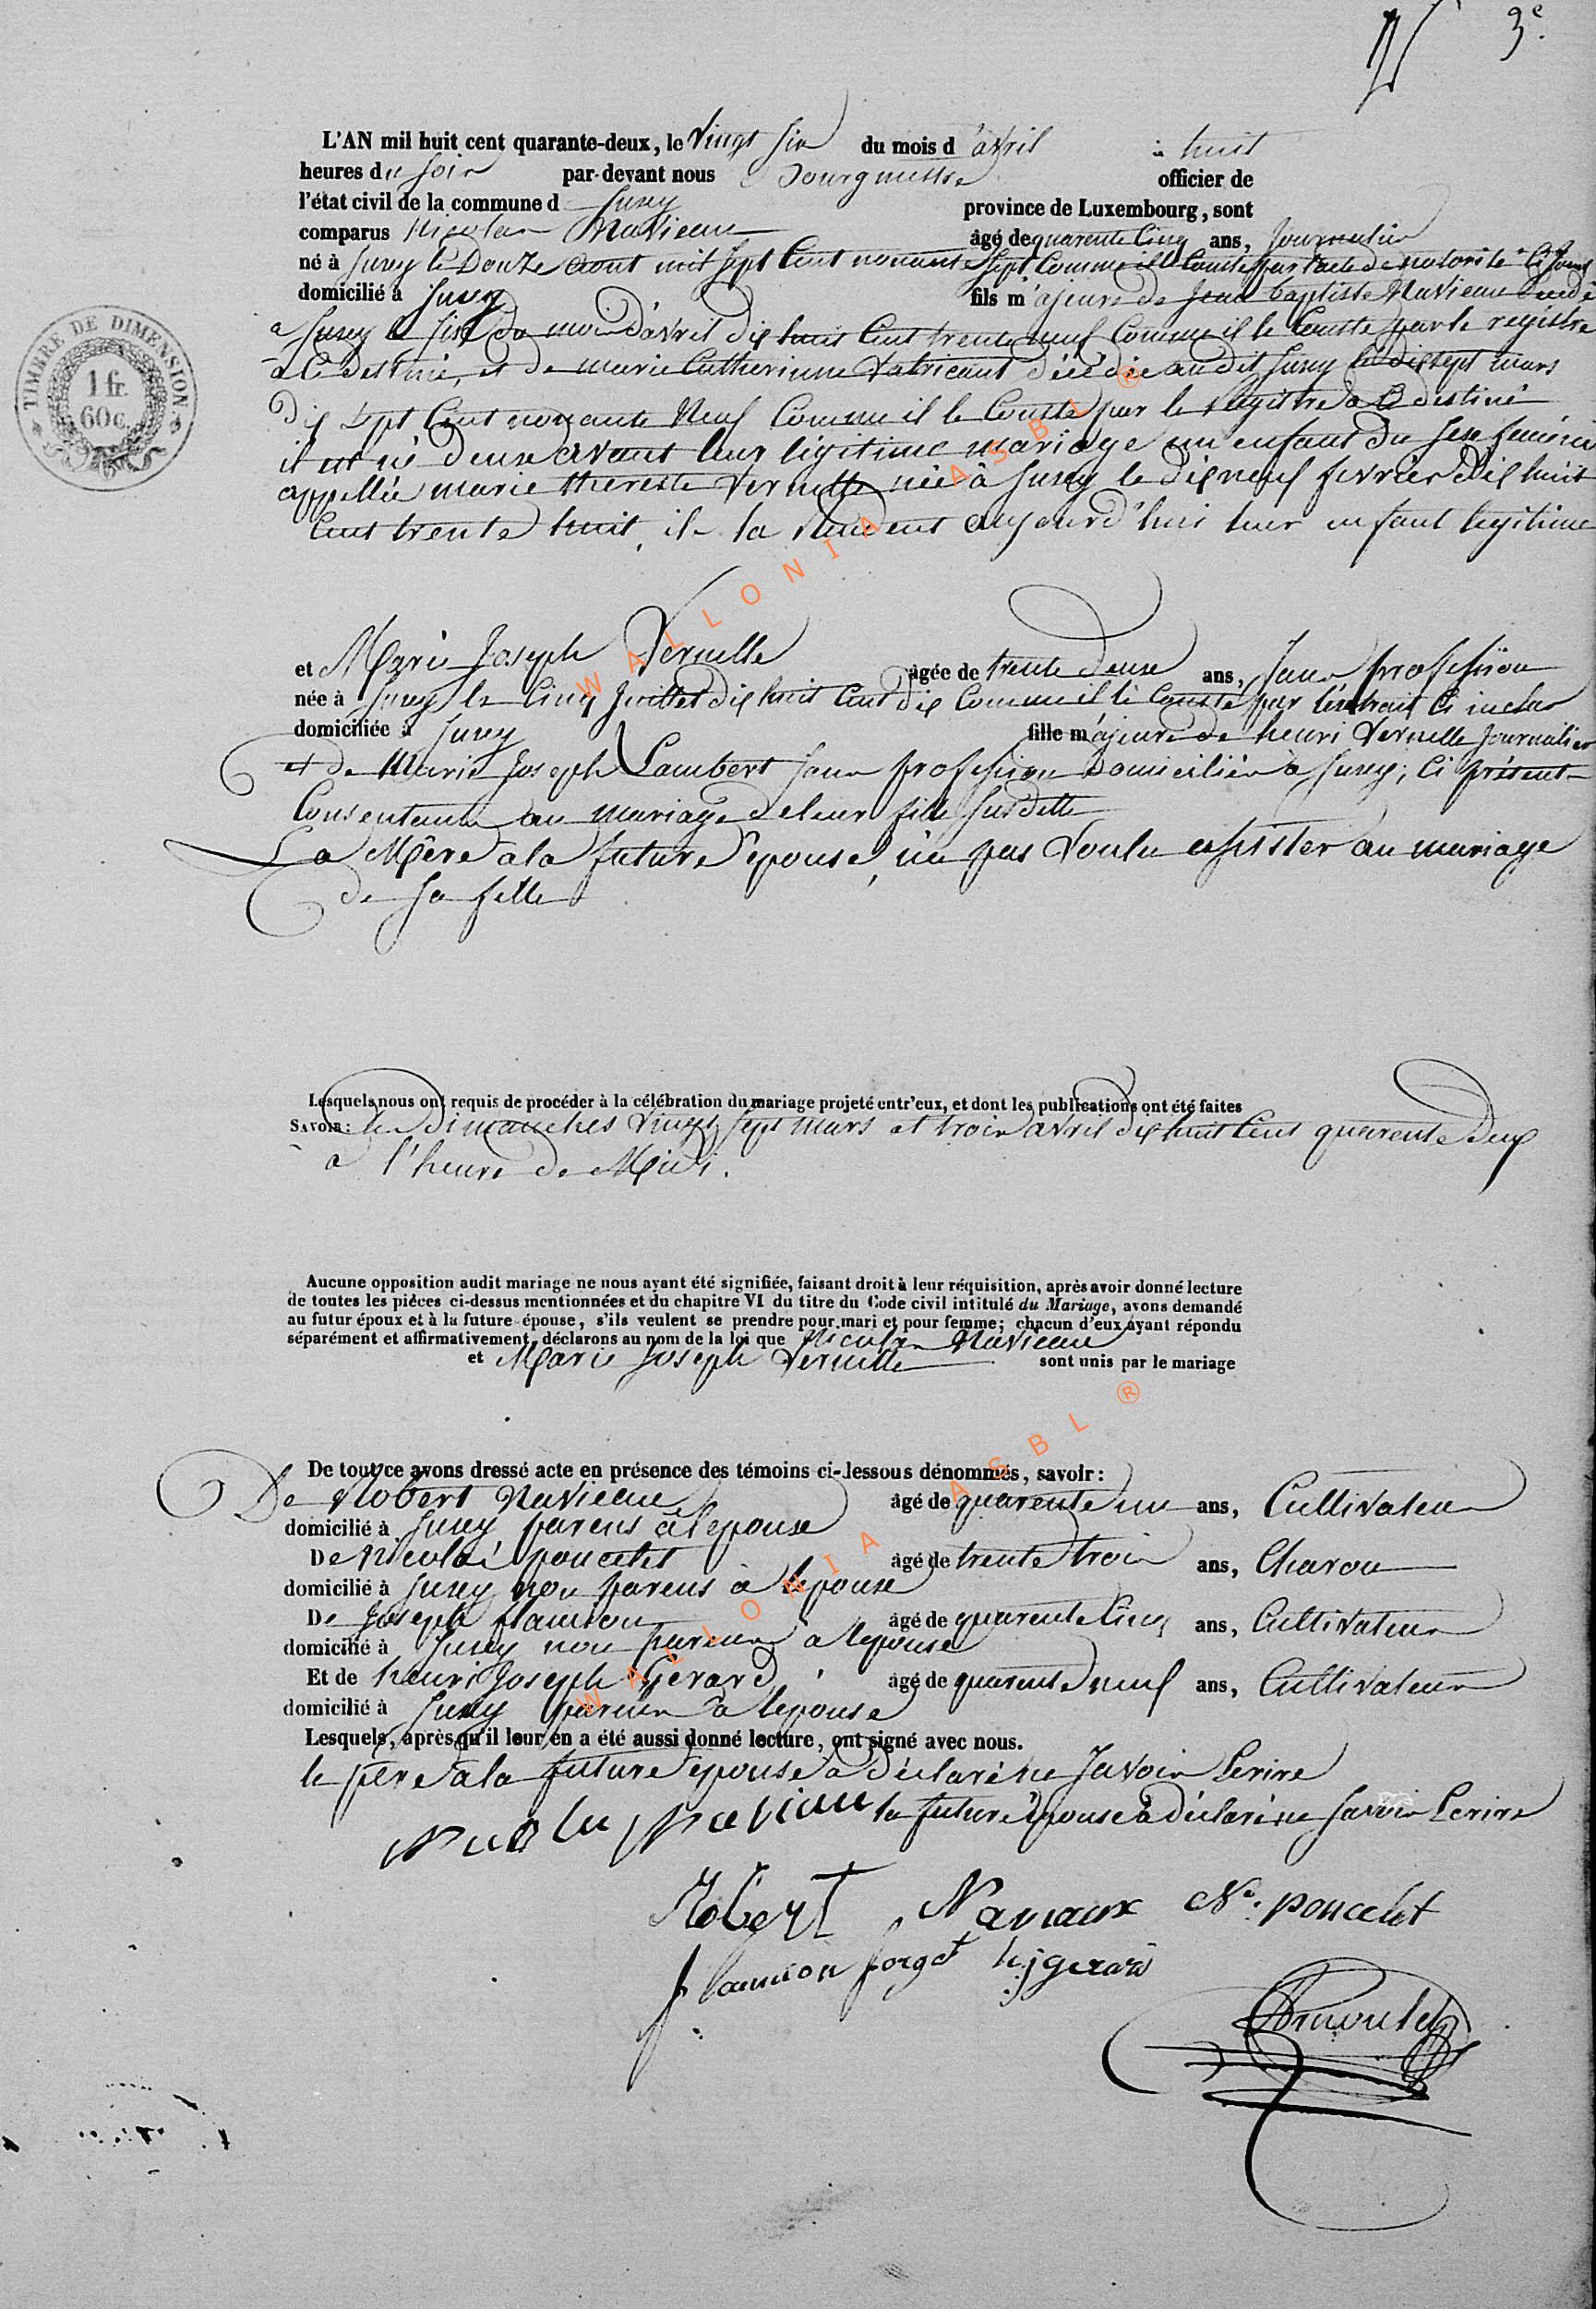 N 3e.
L'AN mil huit cent quarante-deux, le Vingt six du mois d'avril à huit
heures du soir par-devant nous Bourgmestre officier de
l'état civil de la commune d Suxy province de Luxembourg, sont
comparus Nicolas Navieau âgé de quarente Cinq ans, Journalier
né à Suxy le Douze aout mil sept Cent nonante Sept Comme il Conste par l'acte de notorité Ci Joint
domicilié à Suxy fils majeure de Jean baptiste Navieau décédé
a Suxy le six du moi d'avril dix huit Cent trente neuf Comme il le Conste par le registre
a Ce destiné, et de marie Catherinne Fabricant décédée au dit Suxy le dix sept mars
Dix Sept Cent nonante Neuf Comme il le Conste par le registre à Ce destiné
il est né deux avant leur légitime mariage un enfant du sexe féminin
appellée marie thereste Vernelle née à Suxy le dix neuf fevrier dix huit
Cent trente huit, il la rendent aujourd'hui leur enfant legitime
et Marie Joseph Vernelle âgée de trente deux ans, sans profession
née à Suxy le Cinq Juillet dix huit Cent dix Comme il le Conste par l'extrait Ci inclus
domiciliée à Suxy fille majeure de henri Vernelle Journalier
et de Marie Joseph Lambert sans profession Domiciliés à Suxy, Ci présent
Consentant au mariage de leur fille susdette
La Mère a la future épouse, n'a pas Voulu assister au mariage
de sa fille
Lesquels nous ont requis de procéder à la célébration du mariage projeté entr'eux, et dont les publications ont été faites
SAVOIR: les Dimanches Vingt sept mars et trois avril dix huit Cent quarente deux
à l'heure de Midi.
Aucune opposition audit mariage ne nous ayant été signifiée, faisant droit à leur réquisition, après avoir donné lecture
de toutes les pièces ci-dessus mentionnées et du chapitre VI du titre du Code civil intitulé du Mariage, avons demandé
au futur époux et à la future épouse, s'ils veulent se prendre pour mari et pour femme; chacun d'eux ayant répondu
séparément et affirmativement, déclarons au nom de la loi que Nicolas Navieau
et Marie Joseph Vernelle sont unis par le mariage
De tout ce avons dressé acte en présence des témoins ci-dessous dénommés, savoir:
De Robert Navieau âgé de quarente un ans, Cultivateur
domicilié à Suxy parens à l'epouse
De Nicolas poncelet âgé de trente trois ans, Charon
domicilié à Suxy non parens à l'epouse
De Joseph flamion âgé de quarente Cinq ans, Cultivateur
domicilié à Suxy non parens à l'epouse
Et de henri Joseph Gérard âgé de quarente neuf ans, Cultivateur
domicilié à Suxy parens à l'epouse
Lesquels, après qu'il leur en a été aussi donné lecture, ont signé avec nous.
le père a la future épouse a déclaré ne Savoir Ecrire
Nicolas Navieau la future épouse a déclaré ne savoir Ecrire
Robert Naviaux N. poncelet
flamion h j gerard
TIMBRE DE DIMENSION.
1 fr.
60 c.
WALLONIA ASBL ®
WALLONIA ASBL ®